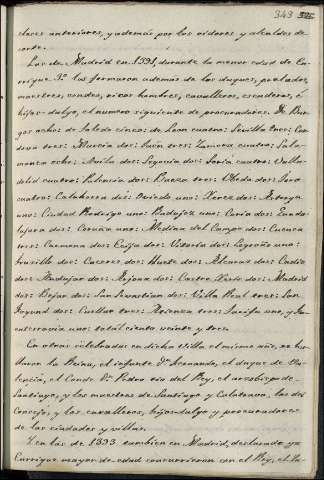 343
clases anteriores, y además por los oidores y alcaldes de
corte.
Las de Madrid en 1391 durante la menor edad de En-
rique 3º las formaron además de los duques, prelados,
maestres, condes, ricos hombres, cavalleros, escuderos, é
hijos-dalgo, el numero siguiente de procuradores. De Bur-
gos ocho: de Toledo cinco: de Leon cuatro: Sevilla tres: Cor-
dova tres: Murcia dos: Jaén tres: Zamora cuatro: Sala-
manca ocho: Avila dos: Segovia dos: Soria cuatro: Valla-
dolid cuatro: Palencia dos: Baeza tres: Ubeda dos: Toro
cuatro: Calahorra dos: Oviedo uno: Xerez dos: Astorga
uno: Ciudad Rodrigo uno: Badajoz uno: Coria dos: Guada-
lajara dos: Coruña uno: Medina del Campo dos: Cuenca
tres: Carmona dos: Ecija dos: Vitoria dos: Logroño uno:
Truxillo dos: Caceres dos: Huete dos: Alcaraz dos: Cadiz
dos: Andujar dos: Arjona dos: Castro Xeriz dos: Madrid
dos: Bejar dos: San Sevastian dos: Villa Real tres: San
Fagund dos: Cuellar tres: Atienza tres: Tarifa uno, y Fu-
enterravia uno: total ciento veinte y tres.
En otras celebradas en dicha villa el mismo año, se ha-
llaron la Reina, el infante Dn Fernando, el duque de Va-
lencia, el Conde Dn Pedro tio del Rey, el arzobispo de
Santiago, y los maestres de Santiago y Calatrava, los del
Consejo, y los cavalleros, hijos-dalgo y procuradores
de las ciudades y villas.
Y en las de 1393 tambien en Madrid, declarado ya
Enrique mayor de edad concurrieron con el Rey, el In-